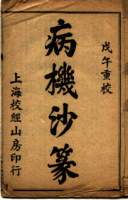 戊午重校
病機沙篆
上海校經山房印行